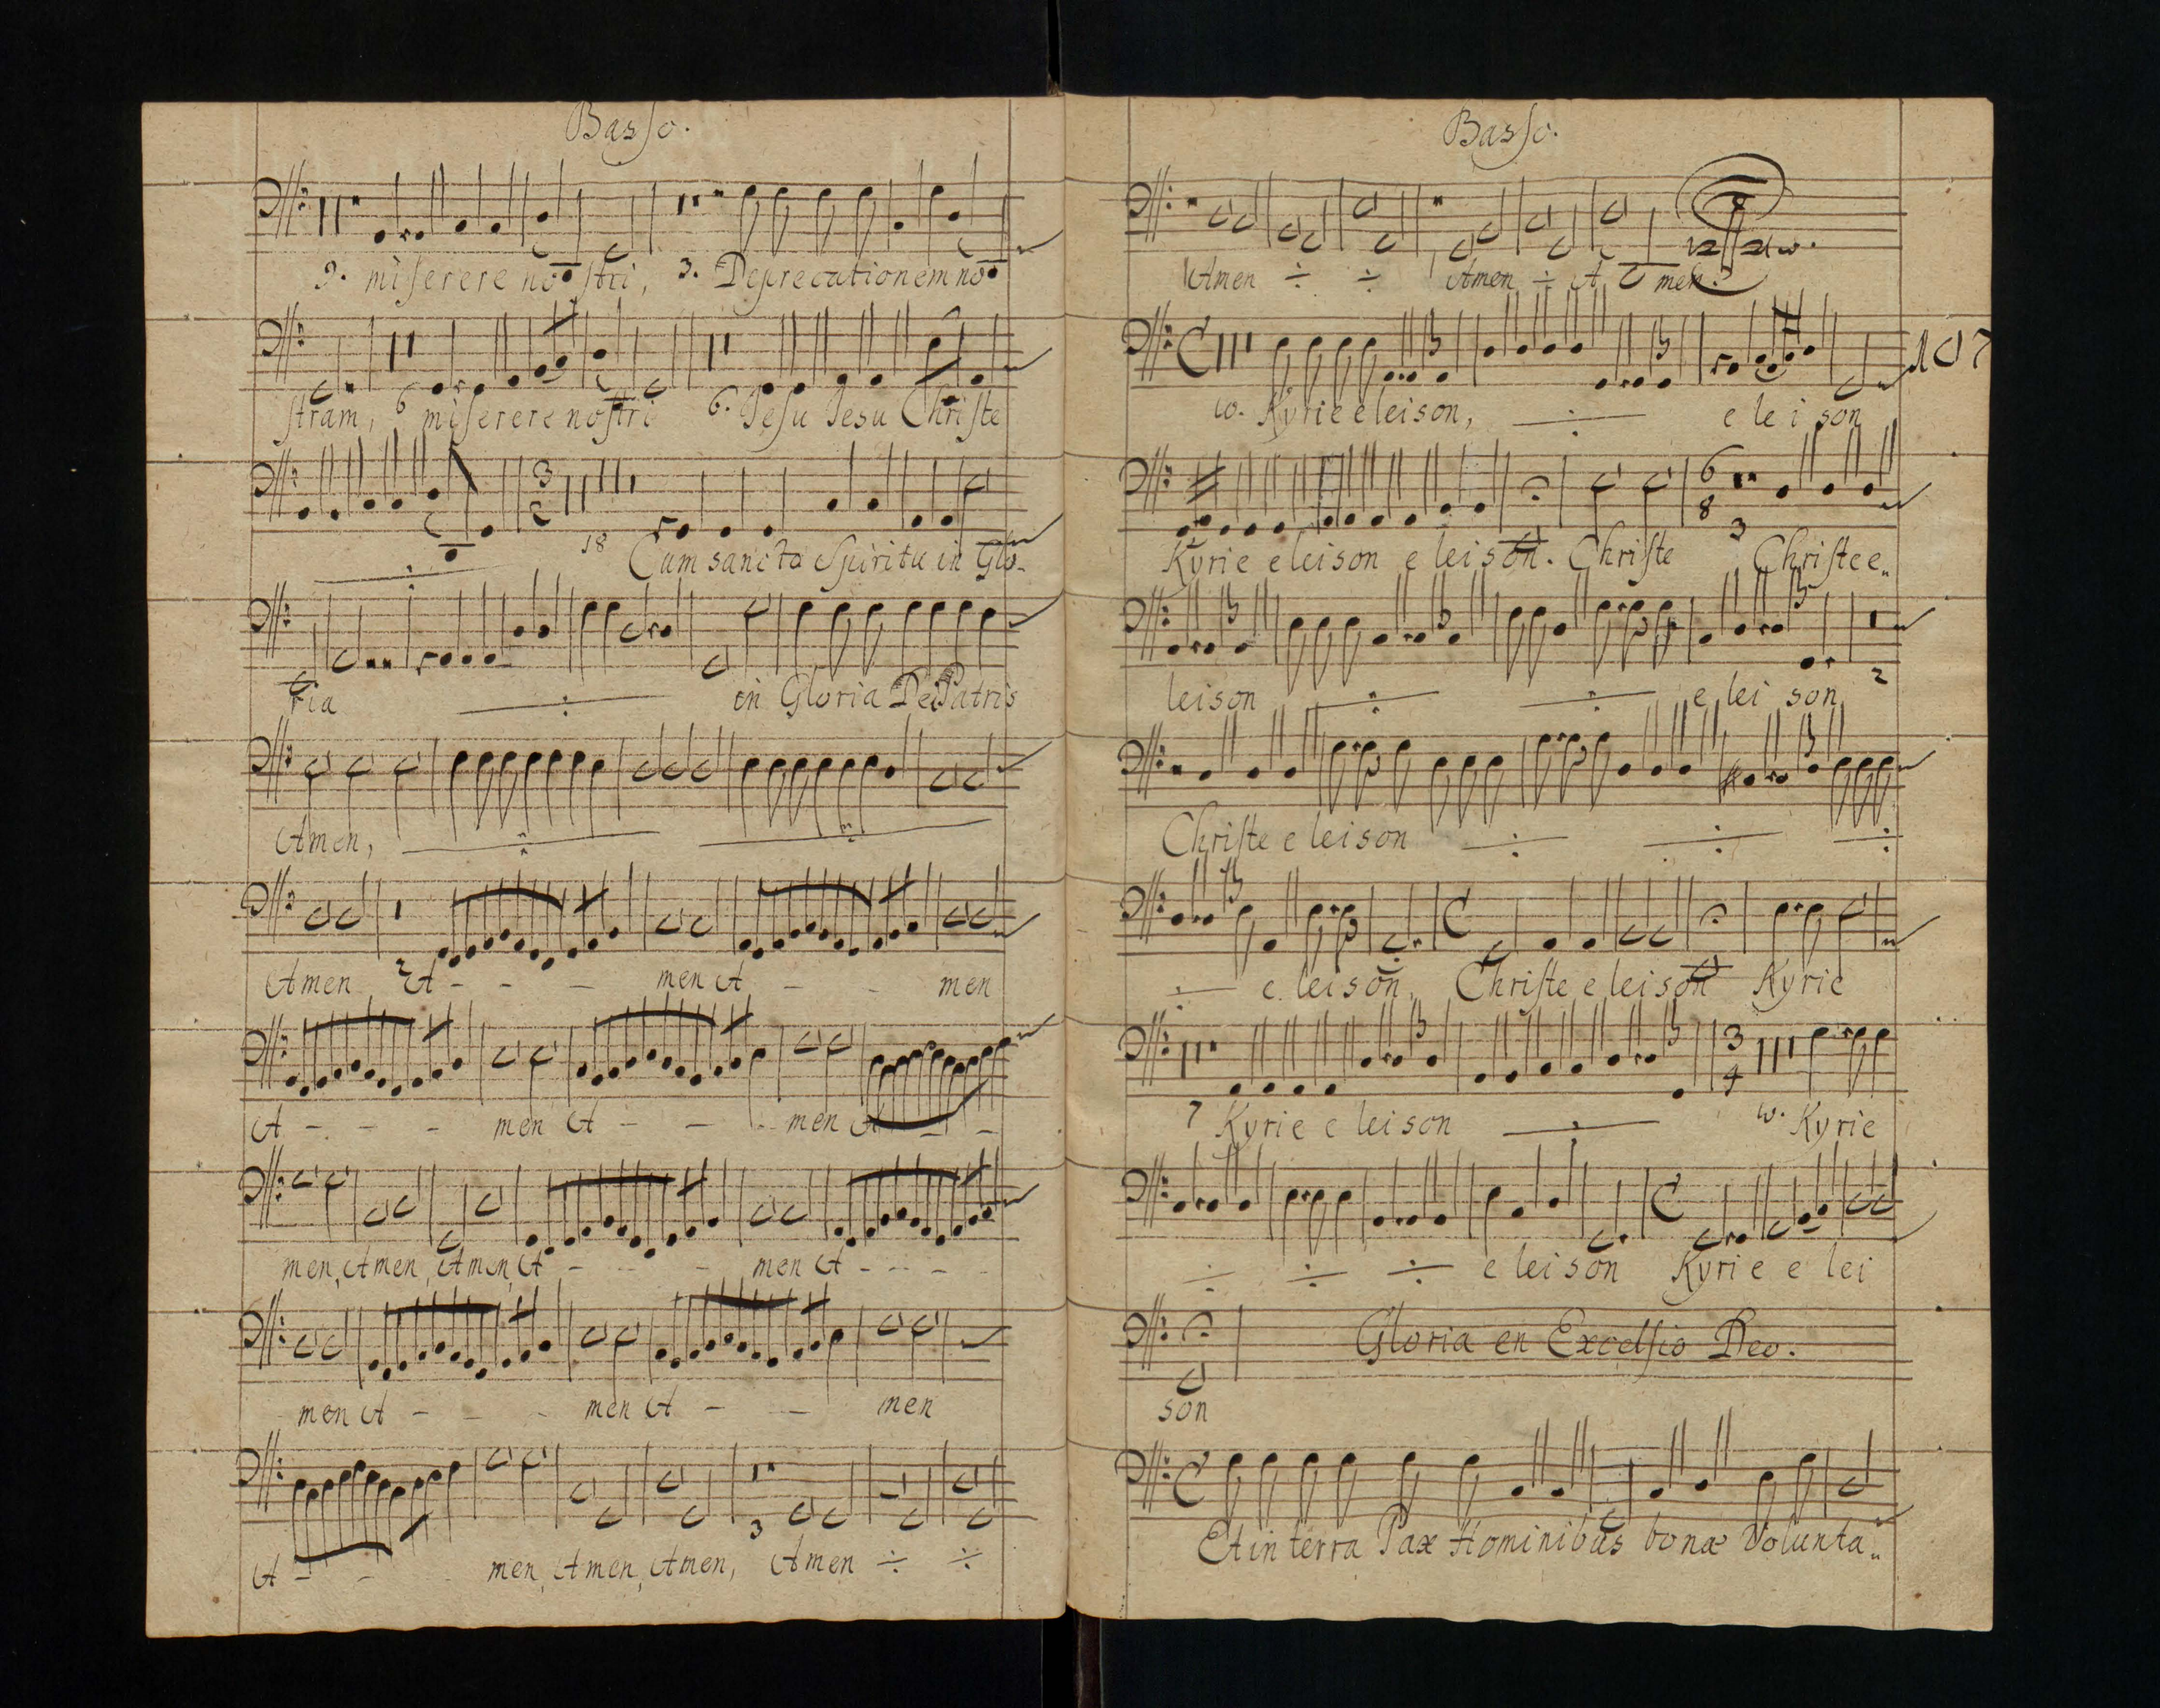 Basso.
9. miserere nostri, 3. Deprecationem no
stram, 6 miserere nostri 6. Jesu Jesu Christe
3 2
18 Cum sancto Spiritu in Glo-
ria in Gloria Dei Patris
Amen,
Amen 2 A - - - men A - - men
A - - - men A - - - men A - -
men, Amen, Amen, A - - - men A - - - -
men A - - - men A - - men
3
A - - - men, Amen, Amen, Amen ÷ ÷
Basso.
Amen ÷ ÷ Amen ÷ A men.
107
10. Kyrie eleison, e le i son
6 8 3
Kyrie eleison e leison. Christe Christe e„
leison e lei son 2
Christe e leison
e leison, Christe e leison Kyrie
3 4
7 Kyrie e leison 10. Kyrie
÷ ÷ ÷ e leison Kyrie e lei
Gloria en Excelsio Deo.
son
Et in terra Pax Hominibus bonæ Volunta„